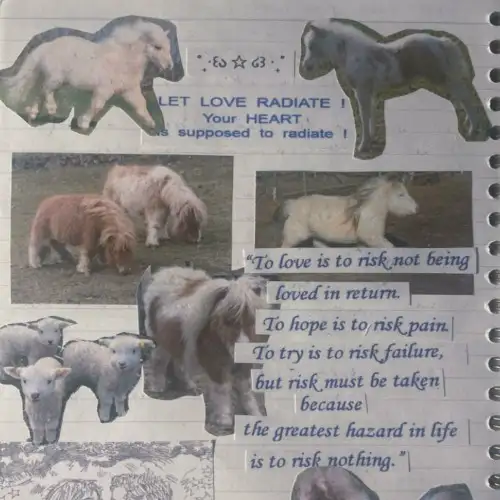 LET LOVE RADIATE !
Your HEART
is supposed to radiate !
"To love is to risk not being
loved in return.
To hope is to risk pain.
To try is to risk failure,
but risk must be taken
because
the greatest hazard in life
is to risk nothing."